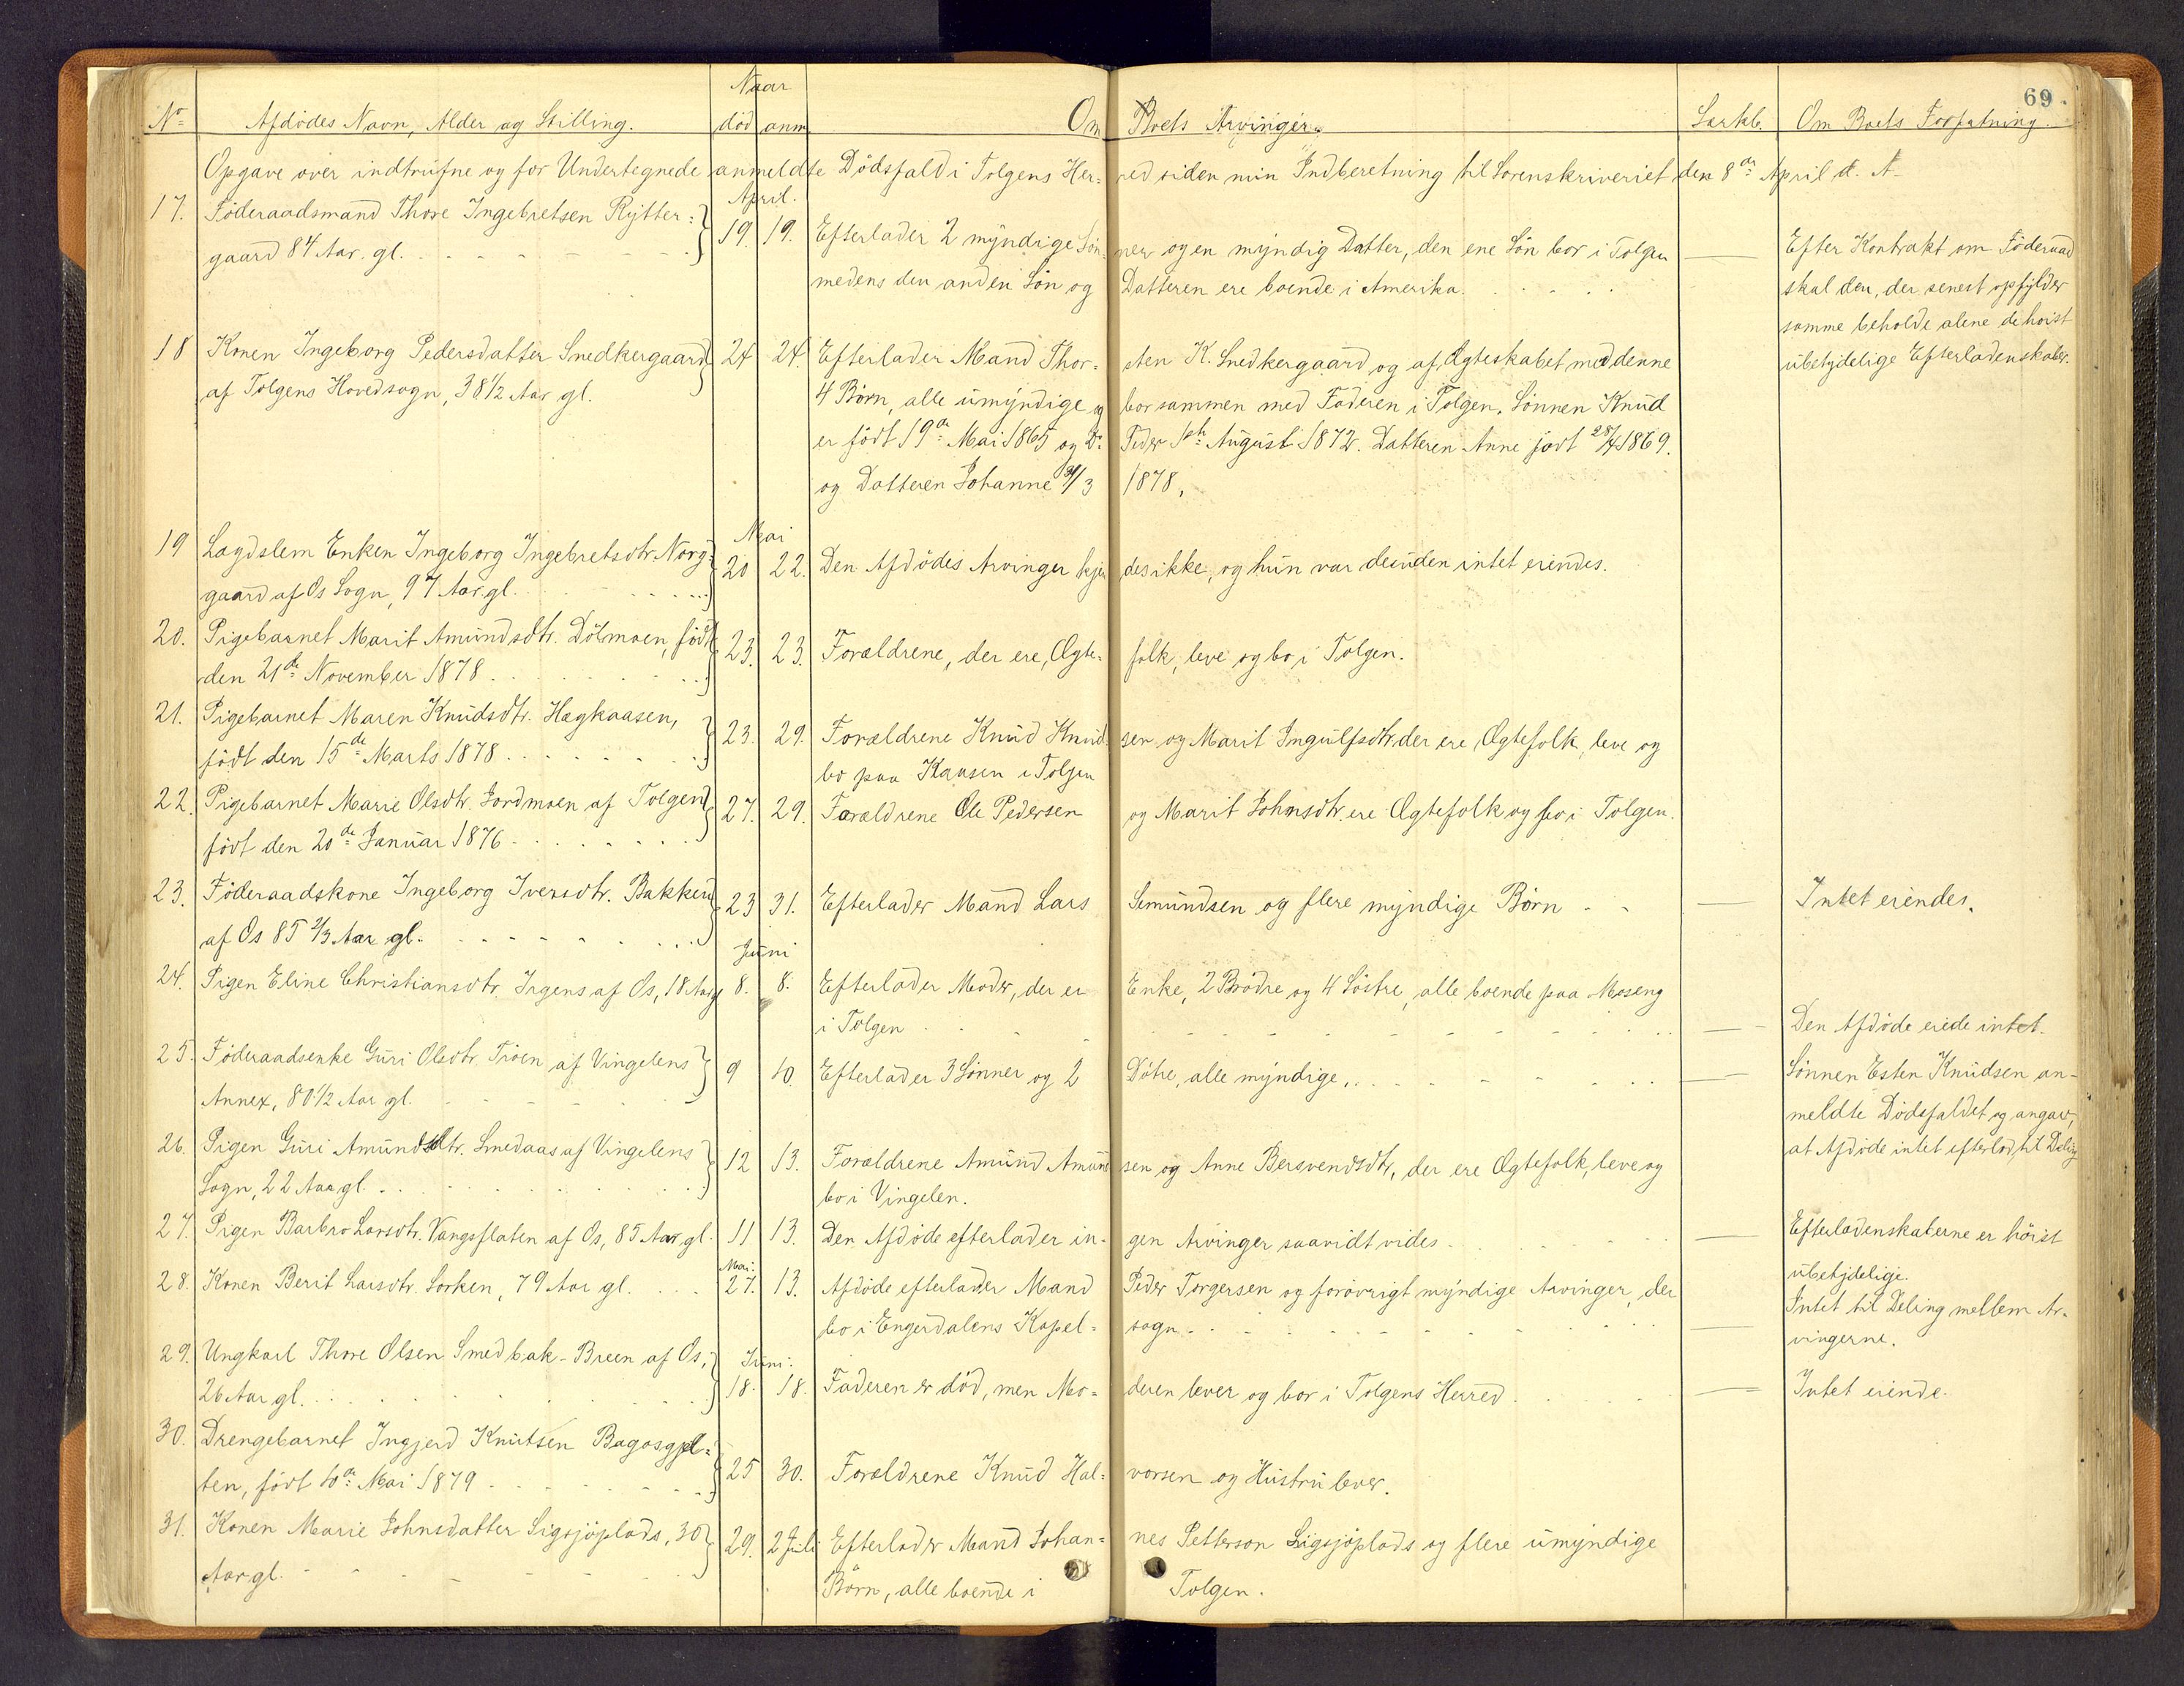 69.
Naar
No Afdödes Navn, Alder og Stilling. död anm Om Boets Arvinger. Særkb. Om Boets Forfatning.
Opgave over indtrufne og for Undertegnede anmeldte Dödsfald i Tolgens Herred siden min Indberetning til Sorenskriveriet den 8de April d. A.
April.
17. Föderaadsmand Thore Ingebretsen Rytter= 19. 19. Efterlader 2 myndige Sönner og en myndig Datter, den ene Sön bor i Tolgen — Efter Kontrakt om Föderaad
gaard 84 Aar. gl. medens den anden Sön og Datteren ere boende i Amerika. skal den, der senest opfylder
samme beholde alene de höist
18 Konen Ingeborg Pedersdatter Smedkergaard 24 24. Efterlader Mand Thor=sten K. Snedkergaard og af Ægteskabet med denne ubetydelige Efterladenskaber.
af Tolgens Hovedsogn, 38 1/2 Aar gl. 4 Börn, alle umyndige og bor sammen med Faderen i Tolgen. Sönnen Knud
er födt 19de Mai 1865 og Do Peder 1ste August 1872. Datteren Anne födt 28/4 1869.
og Datteren Johanne /3 1878.
Mai
19 Lægdslem Enken Ingeborg Ingebretsdtr. Norg= 20 22. Den Afdödes Arvinger kjendes ikke, og hun var desuden intet eiendes.
gaard af Os Sogn, 97 Aar. gl.
20. Pigebarnet Marit Amundsdtr. Dölmoen, födt 23. 23. Forældrene, der ere, Ægte=folk, leve og bo i Tolgen.
den 21de November 1878
21. Pigebarnet Maren Knudsdtr. Hægkaasen, 23. 29. Forældrene Knud Knudsen og Marit Ingulfsdtr. der ere Ægtefolk, leve og
födt den 15de Marts 1878 bo paa Kaasen i Tolgen
22. Pigebarnet Marie Olsdtr. Jordmoen af Tolgen 27. 29. Forældrene Ole Pedersen og Marit Johnsdtr. ere Ægtefolk og bo i Tolgen.
födt den 20de Januar 1876
23. Föderaadskone Ingeborg Iversdtr. Bakken 23 31. Efterlader Mand Lars Semundsen og flere myndige Börn — Intet eiendes.
af Os 85 2/3 Aar gl.
Juni
24. Pigen Eline Christiansdtr. Irgens af Os, 18 Aar gl 8. 8. Efterlader Moder, der er Enke, 2 Brödre og 4 Söstre, alle boende paa Moseng
i Tolgen — Den Afdöde eiede intet.
25. Föderaadsenke Guri Olsdtr. Troen af Vingelens 9 10. Efterlader 3 Sönner og 2 Dötre, alle myndige, — Sönnen Esten Knudsen an-
Annex, 80 1/2 Aar gl. meldte Dödsfaldet og angav,
26. Pigen Guri Amundsdtr. Smedaas af Vingelens 12 13. Forældrene Amund Amundsen og Anne Bersvendsdtr, der ere Ægtefolk, leve og at Afdöde intet efterlod til Deling
Sogn, 22 Aar gl. bo i Vingelen.
27. Pigen Barbro Larsdtr. Vangsflaten af Os, 85 Aar gl. 11 13. Den Afdöde efterlader in-gen Arvinger saavidt vides — Efterladenskaberne er höist
ubetydelige.
Mai:
28. Konen Berit Larsdtr. Sorken, 79 Aar gl. 27. 13. Afdöde efterlader Mand Peder Torgersen og forövrigt myndige Arvinger, der Intet til Deling mellem Ar-
bo i Engerdalens Kapel=sogn. — vingerne.
Juni:
29. Ungkarl Thore Olsen Smedbak-Breen af Os, 18. 18. Faderen er död, men Mo=deren lever og bor i Tolgens Herred. — Intet eiende.
26 Aar gl.
30. Drengebarnet Ingjerd Knutsen Bagosgjel= 25 30. Forældrene Knud Hal=vorsen og Hustru lever.
ten, födt 10de Mai 1879
31. Konen Marie Johnsdatter Sigsjöplads, 30 29. 2 Juli Efterlader Mand Johan=nes Petterson Sigsjöplads og flere umyndige
Aar gl. Börn, alle boende i Tolgen.